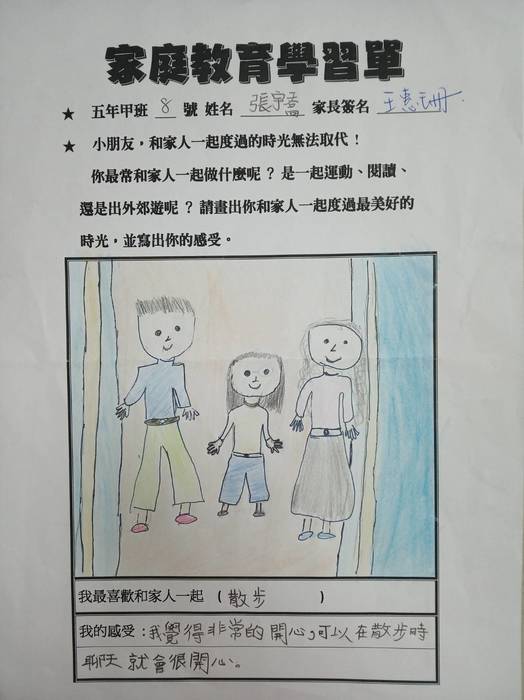 家庭教育學習單
★ 五年甲班 8 號 姓名 張宇 家長簽名 王惠珊
★ 小朋友，和家人一起度過的時光無法取代！
你最常和家人一起做什麼呢？是一起運動、閱讀、
還是出外郊遊呢？請畫出你和家人一起度過最美好的
時光，並寫出你的感受。
我最喜歡和家人一起（散步）
我的感受：我覺得非常的開心，可以在散步時
聊天 就會很開心。